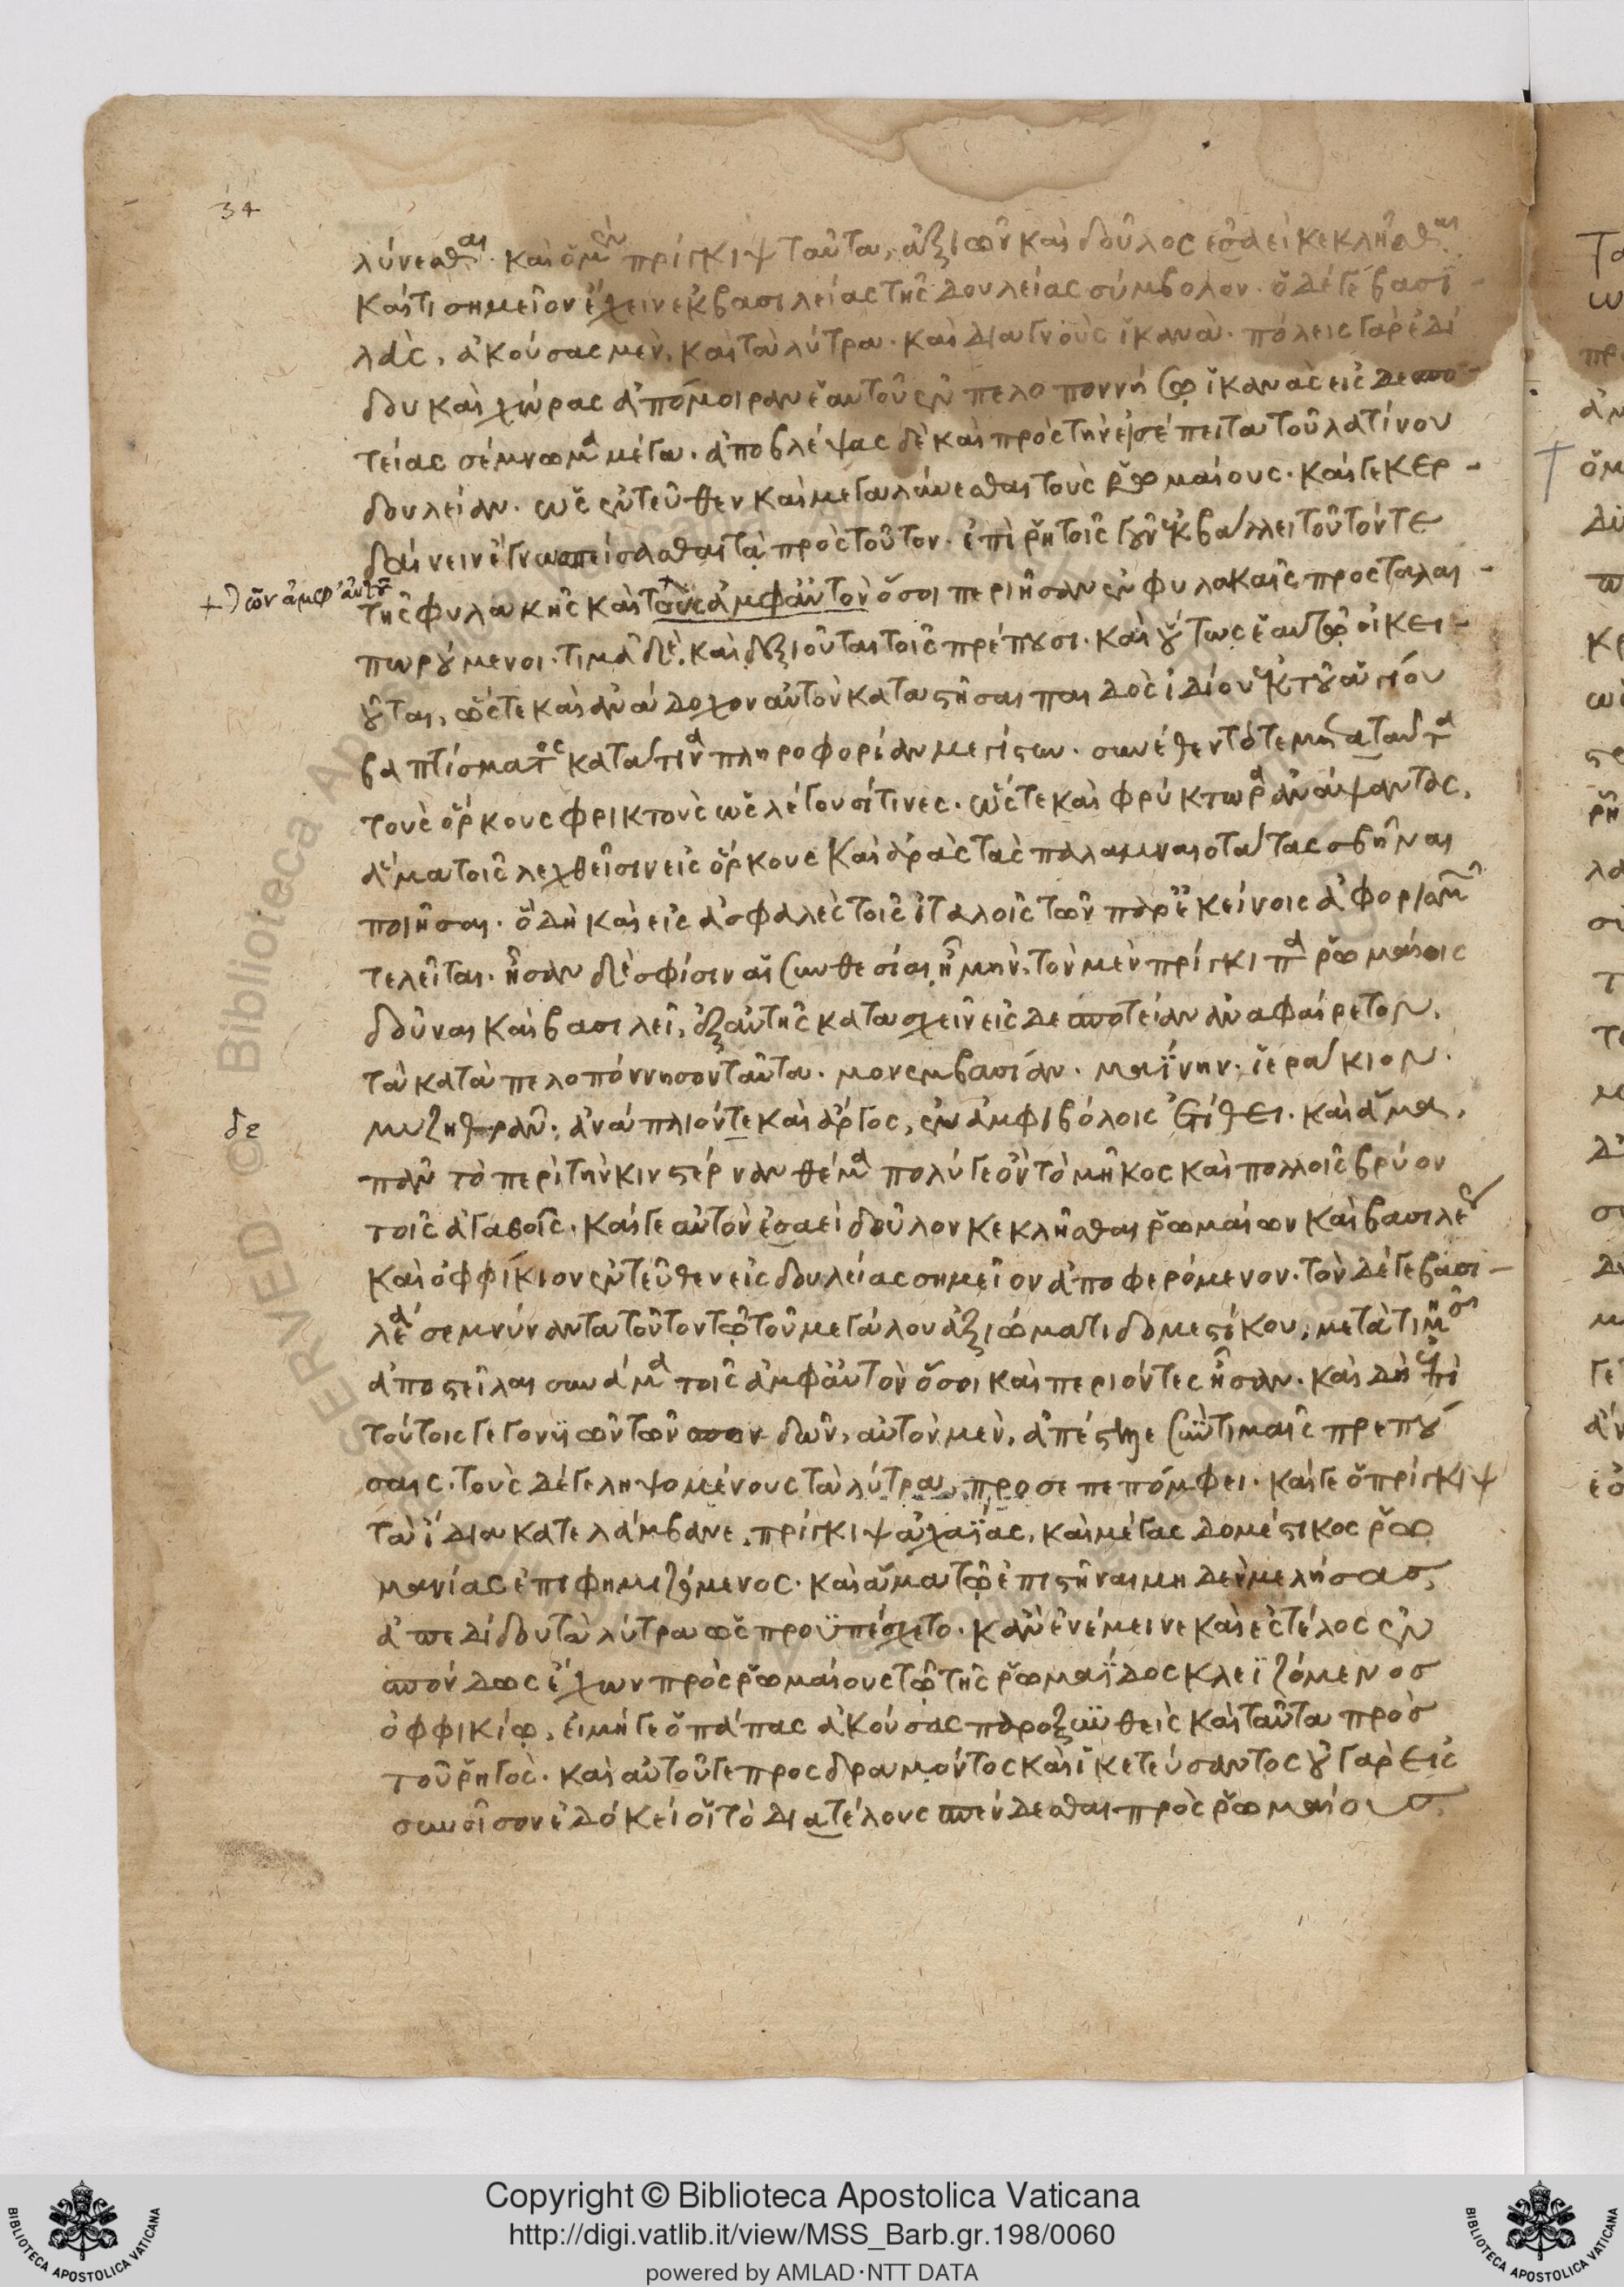 34
λύνεσθαι. καὶ ὁ μὲν πρίγκιψ ταῦτα, ἀξιῶν καὶ δοῦλος ἐσαεὶ κεκλῆσθαι
καί τι σημεῖον ἔχειν ἐκ βασιλείας τῆς δουλείας σύμβολον. ὁ δέ γε βασι-
λεὺς, ἀκούσας μὲν, καὶ τὰ λύτρα. καὶ διαγνοὺς ἱκανὰ. πόλεις γὰρ ἐδί
δου καὶ χώρας ἀπόμοιραν ἑαυτοῦ ἐν πελοποννήσῳ ἱκανὰς εἰς δεσπο-
τείας σέμνωμα μέγα. ἀποβλέψας δὲ καὶ πρὸς τὴν ἐσέπειτα τοῦ λατίνου
δουλείαν. ὡς ἐντεῦθεν καὶ μεγαλύνεσθαι τοὺς ῥωμαίους. καί γε κερ-
δαίνειν ἔγνω πείσασθαι τὰ πρὸς τοῦτον. ἐπὶ ῥητοῖς γοῦν ἐκβάλλει τοῦτόν τε
τῆς φυλακῆς καὶ τοὺς ἀμφ' αὐτὸν ὅσοι περιῆσαν ἐν φυλακαῖς προσταλαι-
+ τῶν ἀμφ' αὐτὸν
πωρούμενοι. τιμᾷ δὲ, καὶ δεξιοῦται τοῖς πρέπουσι. καὶ οὕτως ἑαυτῷ οἰκει-
οῦται, ὥστε καὶ ἀνάδοχον αὐτὸν καταστῆσαι παιδὸς ἰδίου ἐκ τοῦ ἁγίου
βαπτίσματος κατά τινα πληροφορίαν μεγίστην. συνέθεντό τε μετὰ ταῦτα
τοὺς ὅρκους φρικτοὺς ὡς λέγουσί τινες. ὥστε καὶ φρύκτωρα ἀνάψαντας,
ἅμα τοῖς λεχθεῖσιν εἰς ὅρκους καὶ ἀρὰς τὰς παλαμναιοτάτας σβῆναι
ποιῆσαι. ὃ δὴ καὶ εἰς ἀσφαλὲς τοῖς ἰταλοῖς τῶν παρ' ἐκείνοις ἀφορισμῶν
τελεῖται. ἦσαν δὲ σφίσιν αἱ συνθεσίαι, ἦ μὴν, τὸν μὲν πρίγκιπα ῥωμαίοις
δοῦναι καὶ βασιλεῖ, ἐξ αὐτῆς κατασχεῖν εἰς δεσποτείαν ἀναφαίρετον,
τὰ κατὰ πελοπόννησον ταῦτα. μονεμβασίαν. μαΐνην. ἱεράκιον.
μυζηθρᾶν. ἀνάπλιον τε καὶ ἄργος, ἐν ἀμφιβόλοις ἐτίθει. καὶ ἅμα,
δε
πᾶν τὸ περὶ τὴν κινστέρναν θέμα πολύ γε ὂν τὸ μῆκος καὶ πολλοῖς βρύον
τοῖς ἀγαθοῖς. καί γε αὐτὸν ἐσαεὶ δοῦλον κεκλῆσθαι ῥωμαίων καὶ βασιλέων
καὶ ὀφφίκιον ἐντεῦθεν εἰς δουλείας σημεῖον ἀποφερόμενον. τὸν δέ γε βασι-
λέα σεμνύναντα τοῦτον τῷ τοῦ μεγάλου ἀξιώματι δομεστίκου, μετὰ τιμῆς
ἀποστεῖλαι συνάμα τοῖς ἀμφ' αὐτὸν ὅσοι καὶ περιόντες ἦσαν. καὶ δὴ ἐπὶ
τούτοις γεγονυιῶν τῶν σπονδῶν, αὐτὸν μὲν, ἀπέστειλε σὺν τιμαῖς πρεπού
σαις. τοὺς δέ γε ληψομένους τὰ λύτρα, προσεπεπόμφει. καί γε ὁ πρίγκιψ
τὰ ἴδια κατελάμβανε, πρίγκιψ ἀχαΐας, καὶ μέγας δομέστικος ῥω
μανίας ἐπιφημιζόμενος. καὶ ἅμα τῷ ἐπιστῆναι μηδὲν μελήσας,
ἀπεδίδου τὰ λύτρα ὡς προϋπέσχετο. κἂν ἐνέμεινε καὶ ἐς τέλος ἐν
σπονδῶς ἔχων πρὸς ῥωμαίους τῷ τῆς ῥωμαΐδος κλεϊζόμενος
ὀφφικίῳ, εἰ μή γε ὁ πάπας ἀκούσας παροξυνθεὶς καὶ ταῦτα πρὸς
τοῦ ῥηγὸς. καὶ αὐτοῦ γε προσδραμόντος καὶ ἱκετεύσαντος οὐ γὰρ εἰς
συνοῖσον ἐδόκει οἱ τὸ διὰ τέλους σπένδεσθαι πρὸς ῥωμαίους,
Copyright © Biblioteca Apostolica Vaticana
http://digi.vatlib.it/view/MSS_Barb.gr.198/0060
powered by AMLAD·NTT DATA
BIBLIOTECA APOSTOLICA VATICANA
BIBLIOTECA APOSTOLICA VATICANA